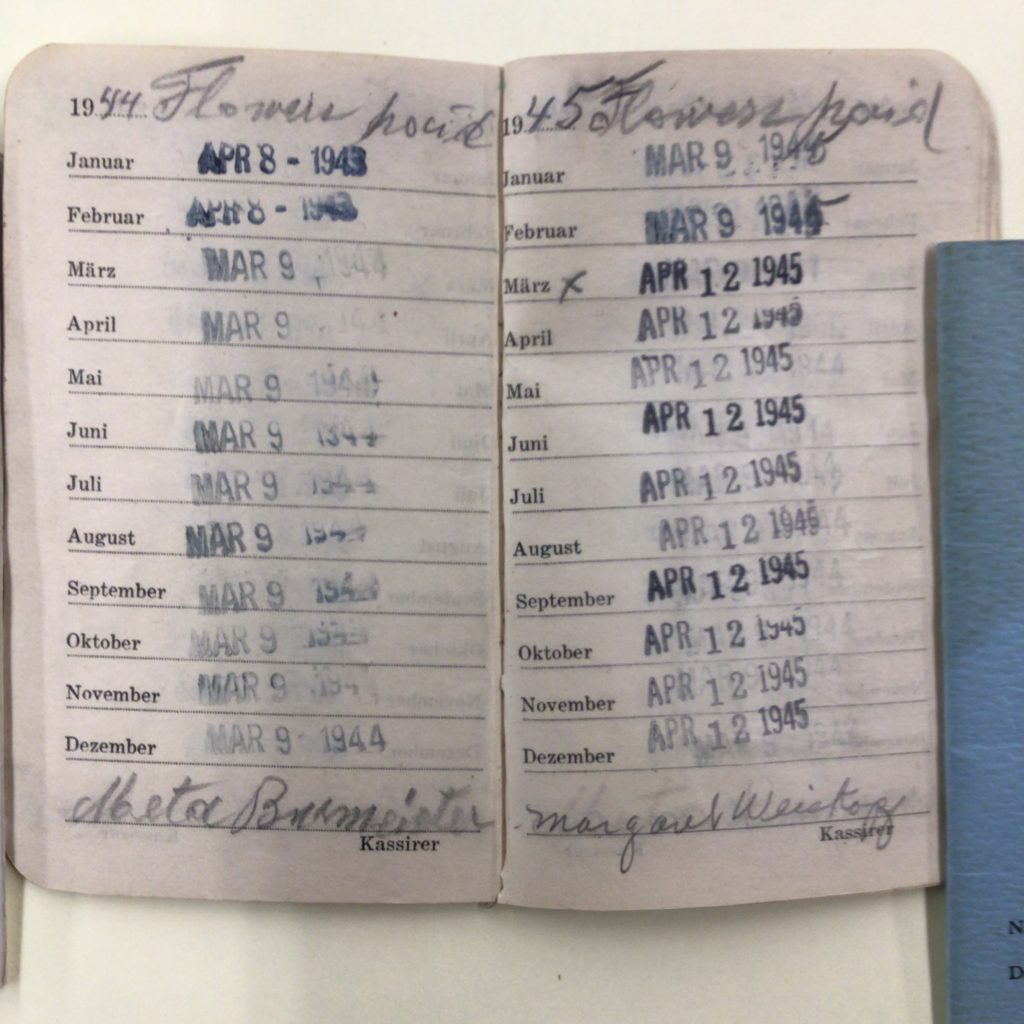 1944 Flowers paid
Januar APR 8 - 1943
Februar APR 8 - 1943
März MAR 9 1944
April MAR 9 1944
Mai MAR 9 1944
Juni MAR 9 1944
Juli MAR 9 1944
August MAR 9 1944
September MAR 9 1944
Oktober MAR 9 1944
November MAR 9 194
Dezember MAR 9 - 1944
Meta Burmeister
Kassirer
1945 Flowers paid
Januar MAR 9 1945
Februar MAR 9 1945
März x APR 12 1945
April APR 12 1945
Mai APR 12 1945
Juni APR 12 1945
Juli APR 12 1945
August APR 12 1945
September APR 12 1945
Oktober APR 12 1945
November APR 12 1945
Dezember APR 12 1945
Margaret Weiskopf
Kassirer